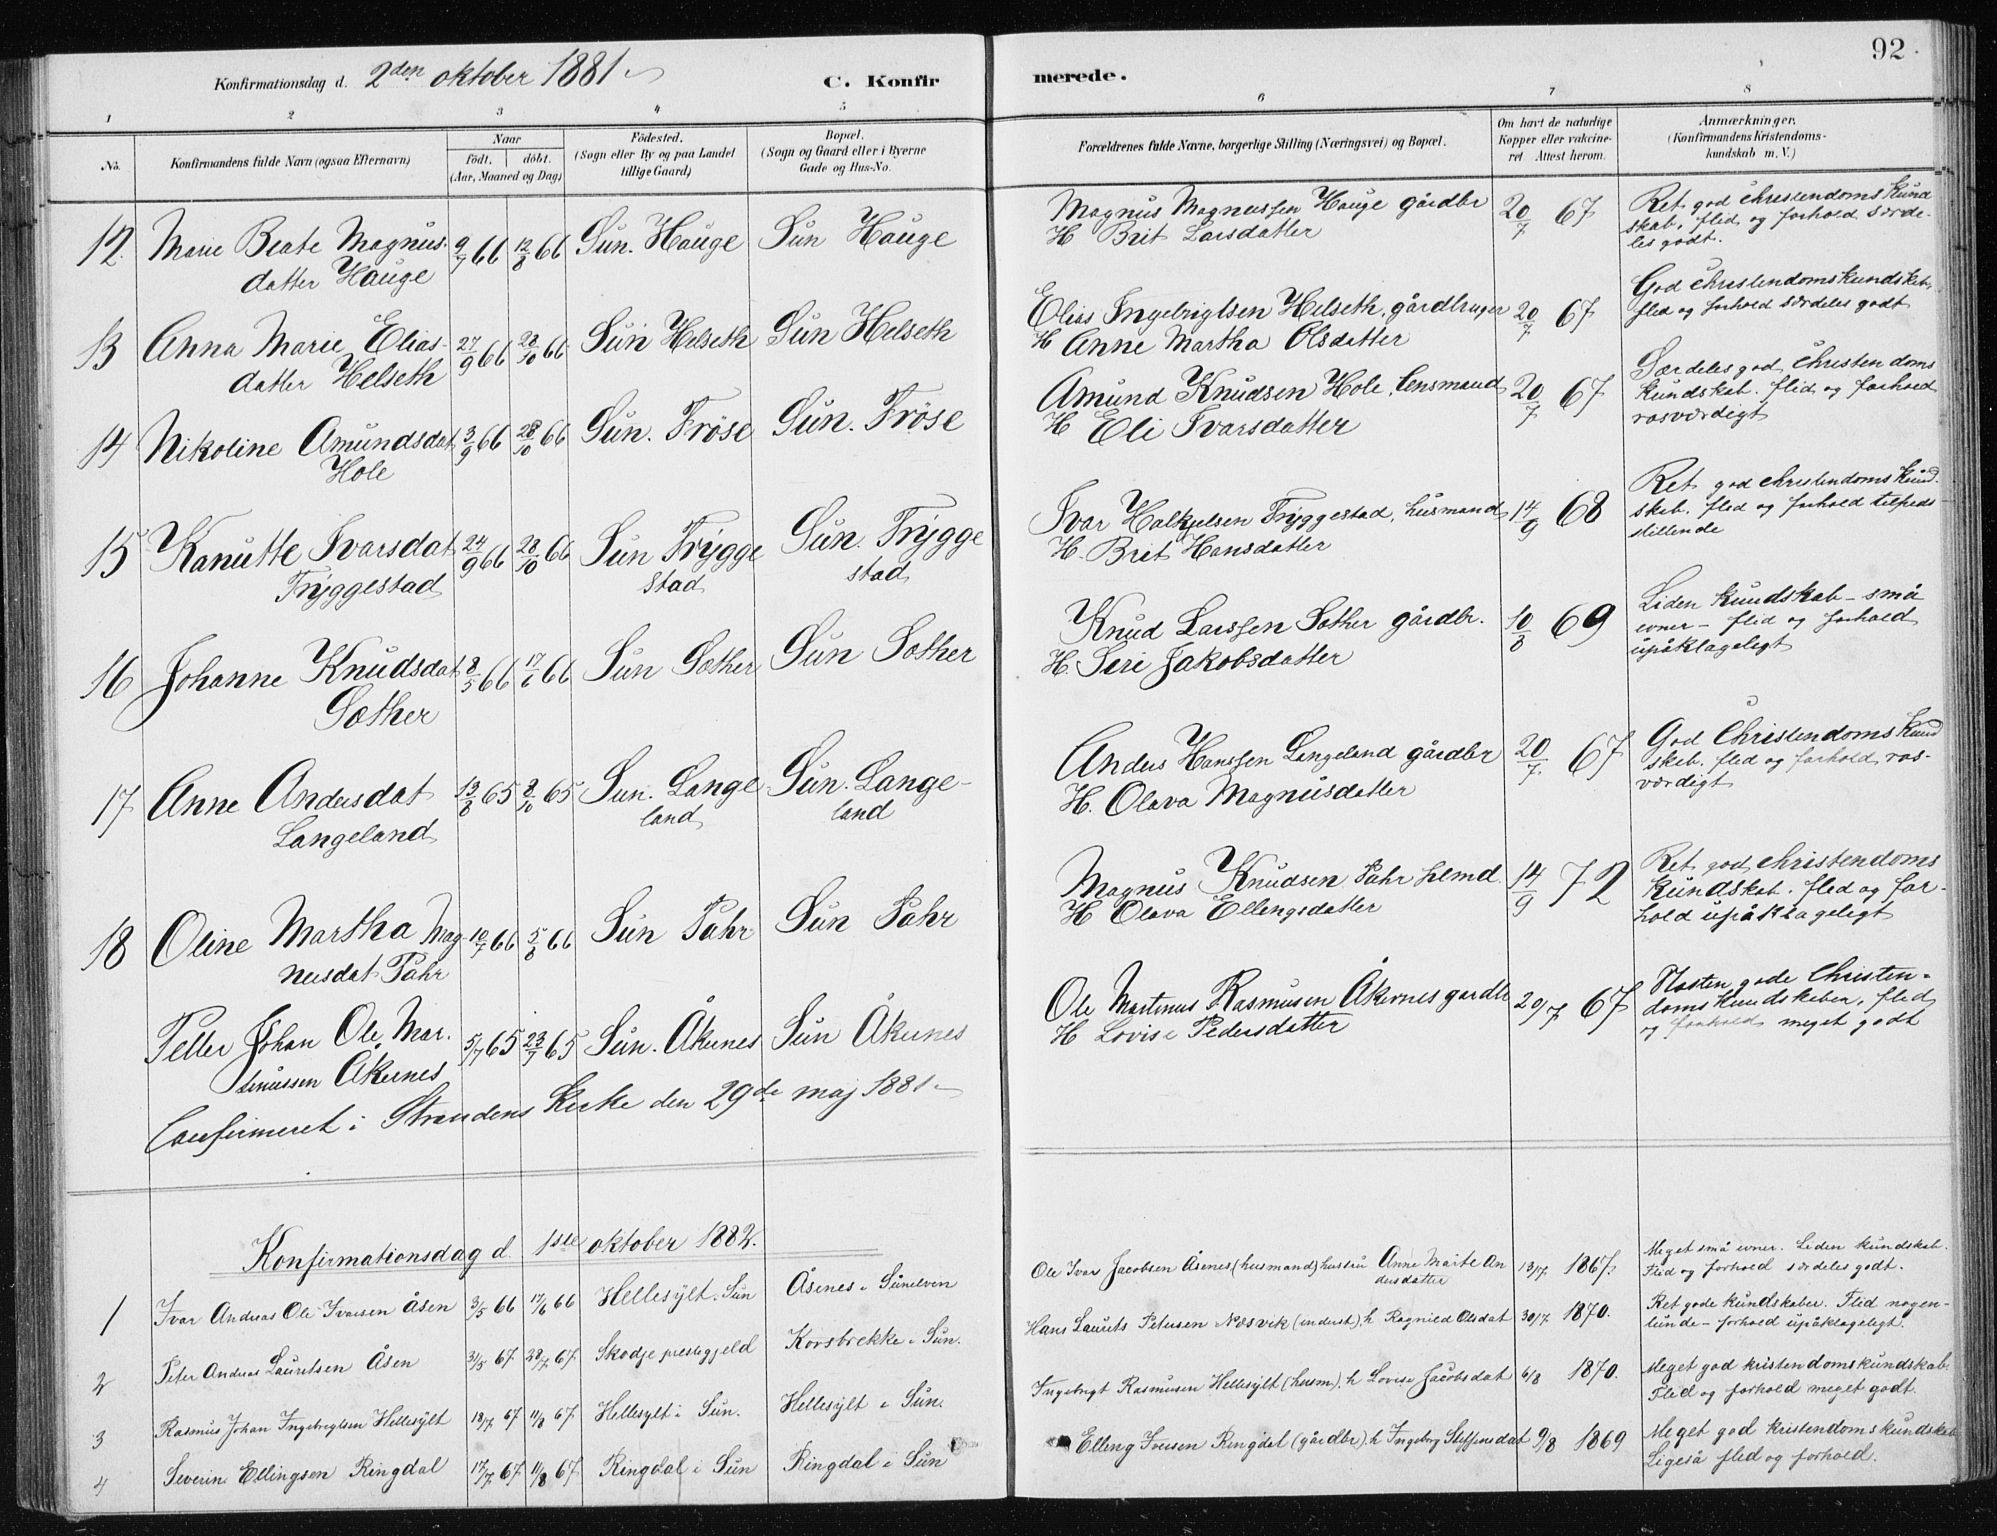 92.
Konfirmationsdag d. 2den oktober 1881
C. Konfirmerede.
1 2 3 4 5 6 7 8
No. Konfirmandens fulde Navn (ogsaa Efternavn) Naar født. døbt. (Aar, Maaned og Dag) Födested. (Sogn eller By og paa Landet tillige Gaard) Bopæl. (Sogn og Gaard eller i Byerne Gade og Hus-No. Forældrenes fulde Navne, borgerlige Stilling (Næringsvei) og Bopæl. Om havt de naturlige Kopper eller vakcineret. Attest herom. Anmærkninger. (Konfirmandens Kristendomskundskab m. V.)
12. Marie Beate Magnus- 9/7 66 12/8 66 Sun. Hauge Sun Hauge Magnus Magnussen Hauge gårdbr 20/7 67 Ret god christendomskund
datter Hauge H Brit Larsdatter skab, flid og forhold særde-
les godt.
13 Anna Marie Elias- 27/9 66 28/10 66 Sun Helseth Sun Helseth Elias Ingebrigtsen Helseth, gårdbruger 20/7 67 God christendomskundskab,
datter Helseth H Anne Martha Olsdatter flid og forhold særdeles godt
14 Nikoline Amundsdat 3/9 66 28/10 66 Sun. Fröse Sun. Fröse Amund Knudsen Hole, lensmand 20/7 67 Særdeles god christendoms
Hole H Eli Ivarsdatter kundskab. flid og forhold
rosværdigt
15 Kanutte Ivarsdat 24/9 66 28/10 66 Sun Trygge Sun. Trygge Ivar Halkjelsen Tryggestad, husmand 14/9 68 Ret god christendomskund-
Tryggestad stad stad H. Brit Hansdatter skab. flid og forhold tilfreds
stillende
16 Johanne Knudsdat 8/5 66 17/6 66 Sun Sæther Sun Sæther Knud Larssen Sæther gårdbr. 10/8 69 Liden kundskab - små
Sæther H. Seri Jakobsdatter evner - flid og forhold
upåklageligt
17 Anne Andersdat 13/8 65 8/10 65 Sun. Lange Sun. Lange- Anders Hanssen Langeland gårdbr 20/7 67 God Christendomskund
Langeland land land H. Olava Magnusdatter skab. flid og forhold ros-
værdigt
18 Oline Martha Mag- 10/7 66 5/8 66 Sun Pahr Sun Pahr Magnus Knudsen Pahr hsmd. 14/9 72 Ret god christendoms
nusdat Pahr H Olava Ellingsdatter kundskab. flid og for-
hold upåklageligt
Petter Johan Ole Mar- 5/7 65 23/7 65 Sun. Åkernes Sun Åkernes Ole Martinus Rasmusen Åkernes gardbr 20/7 67 Næsten gode Christen-
tinussen Åkernes H Lovise Pedersdatter domskundskaben, flid
og forhold meget godt
Confirmeret i Strandens Kirke den 29de maj 1881
Konfirmationsdag d. 1ste oktober 1882.
1 Ivar Andreas Ole-Ivarsen Åsen 3/5 66 17/6 66 Hellesylt i Sun Åsenes i Sunelven Ole Ivar Jacobsen Åsenes (husmand) hustru Anne Marte An 13/7 1867. Meget små evner. Liden kundskab.
dersdatter Flid og forhold særdeles godt.
2 Peter Andreas Lauritsen Åsen 31/5 67 28/7 67 Skodje prestegjeld Korsbrekke i Sun. Hans Laurits Petersen Næsvik (inderst) h Ragnild Olsdat 30/7 1870. Ret gode kundskaber. Flid nogen-
lunde - forhold upåklageligt.
3 Rasmus Johan Ingebrigtsen Hellesylt 18/7 67 11/8 67 Hellesylt i Sun. Hellesylt i Sun. Ingebrigt Rasmusen Hellesylt (husm). h Lovise Jacobsdat 6/8 1870. Meget god kristendomskundskab.
Flid og forhold meget godt.
4 Severin Ellingsen Ringdal 17/7 67 11/8 67 Ringdal i Sun Ringdal i Sun Elling Iversen Ringdal (gårdbr). h Ingeborg Steffensdat 9/8 1869 Meget god kristendomskundskab
Ligeså flid og forhold.